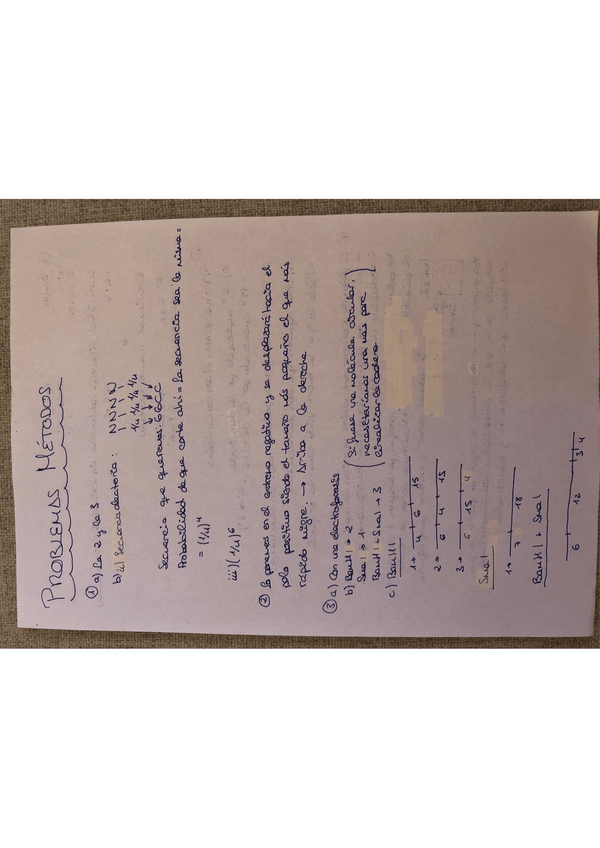 PROBLEMAS MÉTODOS
① a) La 2 y la 3
b) ii) Secuencia aleatoria: N N N N
1/4 1/4 1/4 1/4
Secuencia que queremos: GGCC
Probabilidad de que corte ahí = la secuencia sea la misma =
= (1/4)⁴
iii) (1/4)⁶
② Lo ponemos en el extremo negativo y se desplazará hacia el
polo positivo siendo el tamaño más pequeño el que más
rápido migre: → Arriba a la derecha
③ a) Con una electroforesis
b) BamHI → 2
SmaI → 1
BamHI + SmaI → 3
(Si fuese una molécula circular,
necesitaríamos una más para
linealizar la cadena)
c) BamHI
1→ 4 6 15
2→ 6 4 15
3→ 6 15 4
SmaI
1→ 7 18
BamHI + SmaI
6 12 3 4